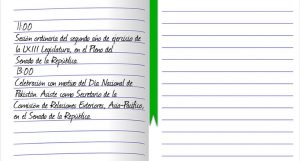 11:00
Sesión ordinaria del segundo año de ejercicio de
la LXIII Legislatura, en el Pleno del
Senado de la República.
13:00
Celebración con motivo del Día Nacional de
Pakistán. Asiste como Secretario de la
Comisión de Relaciones Exteriores, Asia-Pacífico,
en el Senado de la República.